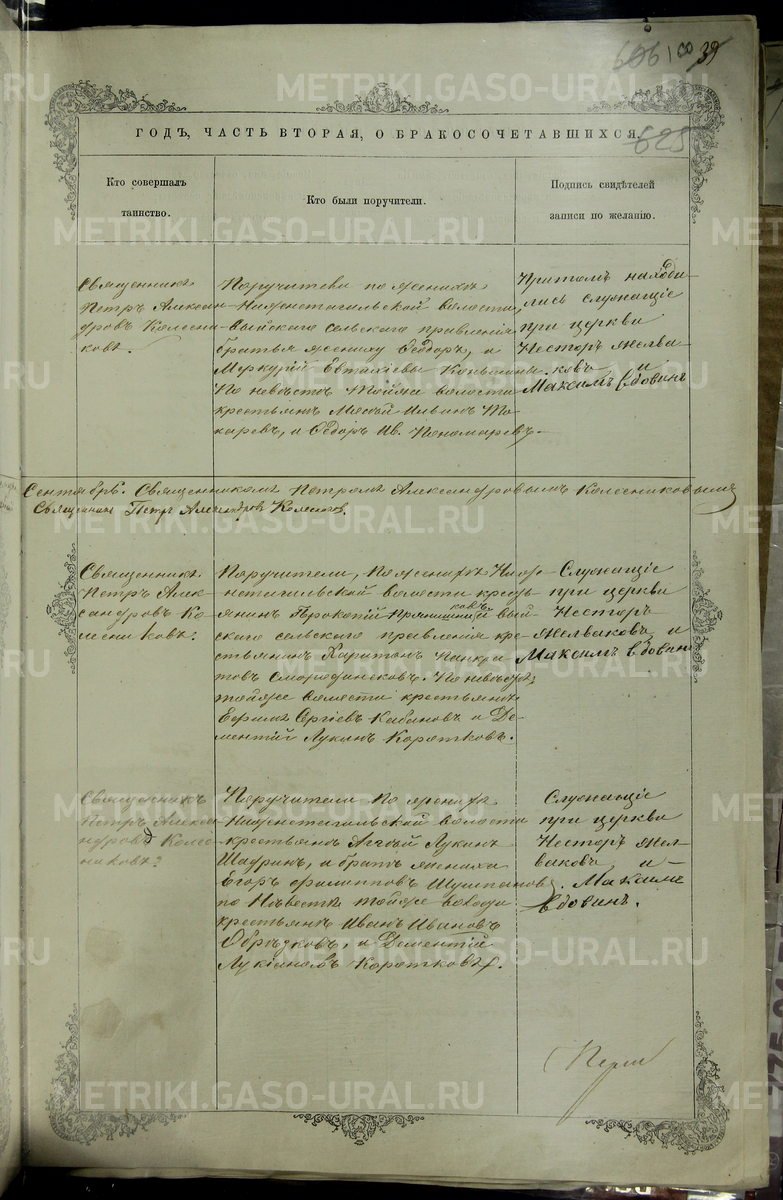 39
625
ГОДЪ, ЧАСТЬ ВТОРАЯ, О БРАКОСОЧЕТАВШИХСЯ.
Кто совершалъ
таинство.
Кто были поручители.
Подпись свидѣтелей
записи по желанію.
Священникъ
Петръ Алексан-
дровъ Колесни-
ковъ.
Поручители по женихѣ
Нижнетагильской волости,
Выйскаго сельскаго правленія
братья жениху Ѳеодоръ, и
Меркурій Евтихіевы
По невѣстѣ волости
крестьяне Ильинъ То-
каревъ, и Ѳедоръ Ив. Пономаревъ.
Притомъ находи-
лись служащіе
при церкви
Несторъ Желва-
ковъ и
Максимъ Вдовинъ
Сентябрь. Священникомъ Петромъ Александровымъ Колесниковымъ
Священникъ Петръ Александровъ Колесниковъ.
Священникъ
Петръ Алек-
сандровъ Ко-
лесниковъ.
Поручители, по женихѣ Ниж-
нетагильской волости кресть-
янинъ Прокопій Вый-
скаго сельскаго правленія кре-
стьянинъ Харитонъ Панкра-
товъ Смородинсковъ. По невѣстѣ,
тойже волости крестьяне
Ефимъ Сергіевъ Кабановъ и Де-
ментій Лукинъ Коротковъ.
Служащіе
при церкви
Несторъ
Желваковъ и
Максимъ Вдовинъ
Священникъ
Петръ Алекса-
ндровъ Колес-
никовъ
Поручители по женихѣ
Нижнетагильской волости
крестьяне Лукинъ
Шадринъ, и братъ жениха
Егоръ Филипповъ
по Невѣстѣ тойже волости
крестьяне Иванъ Ивановъ
Образковъ, и Дементій
Лукіяновъ Коротковъ.
Служащіе
при церкви
Несторъ Жел-
ваковъ и
Максимъ
Вдовинъ.
METRIKI.GASO-URAL.RU